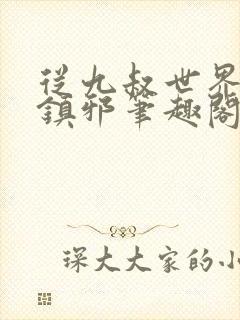 從九叔世界
鎮邪筆趣閣
琛大大家的小